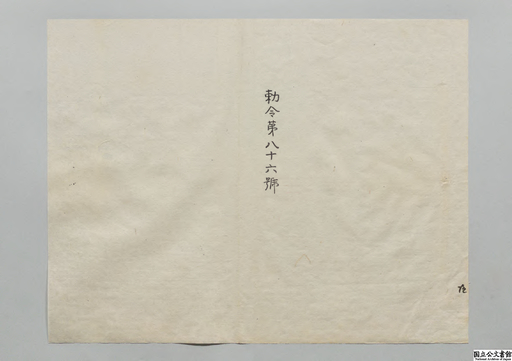 勅令第八十六號
国立公文書館
National Archives of Japan